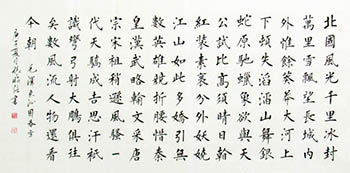 北國風光千里冰封
萬里雪飄望長城內
外惟餘莽莽大河上
下頓失滔滔山舞銀
蛇原馳蠟象欲與天
公試比高須晴日看
紅裝素裹分外妖嬈
江山如此多嬌引無
數英雄競折腰惜秦
皇漢武略輸文采唐
宗宋祖稍遜風騷一
代天驕成吉思汗祇
識彎弓射大鵰俱往
矣數風流人物還看
今朝 毛澤東沁園春雪